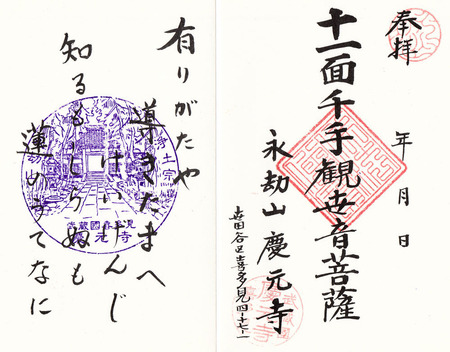 奉拝
年 月 日
十一面千手觀世音菩薩
永劫山 慶元寺
世田谷区喜多見四-十七-一
有りがたや
導きたまへ
けいげんじ
知るもしらぬも
蓮のうてなに
土宗
武蔵國喜多見
元寺